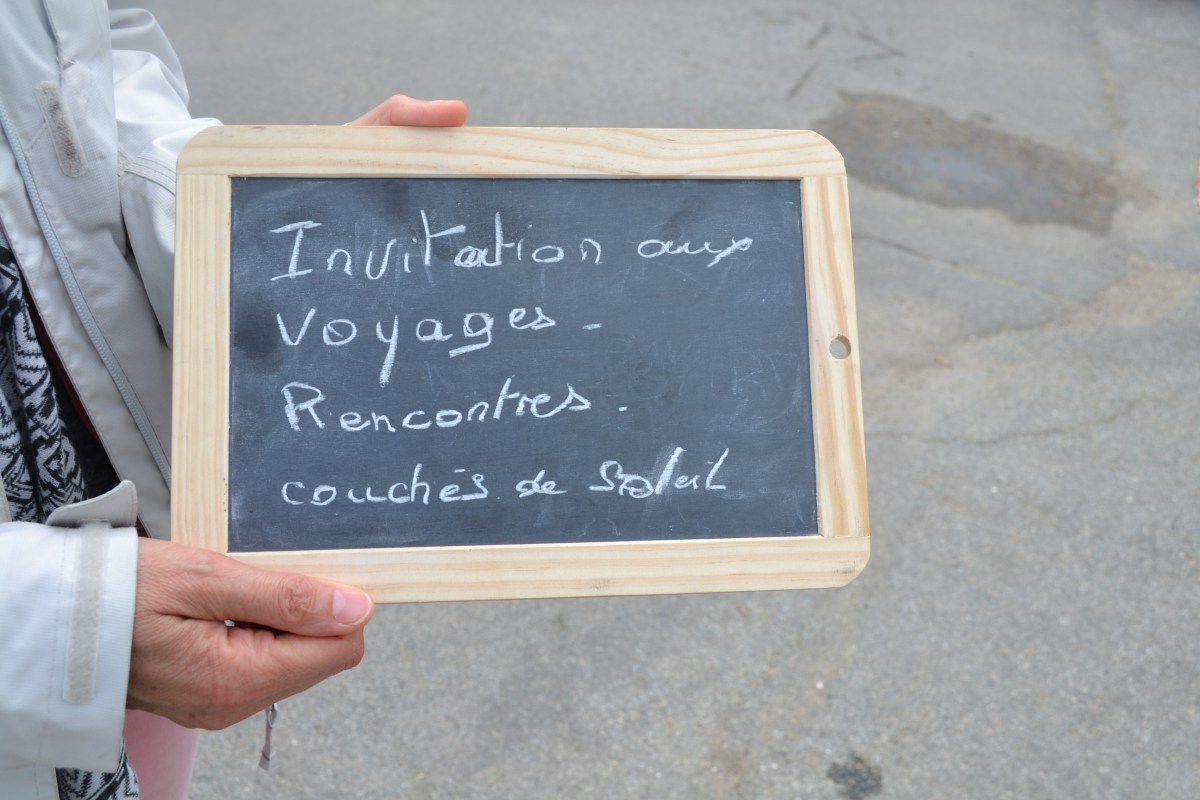 Invitation aux
Voyages -
Rencontres.
couchés de Soleil